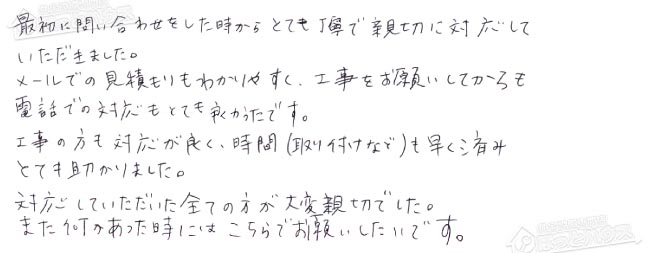 最初に問い合わせをした時からとても丁寧で親切に対応して
いただきました。
メールでの見積もりもわかりやすく、工事をお願いしてからも
電話での対応もとても良かったです。
工事の方も対応が良く、時間(取り付けなど)も早く済み
とても助かりました。
対応していただいた全ての方が大変親切でした。
また何かあった時にはこちらでお願いしたいです。